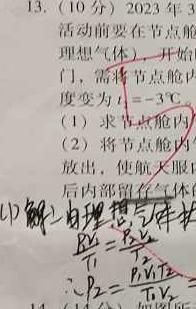 13.（10 分）2023 年 3
活动前要在节点舱
理想气体），开始
门，需将节点舱内
度变为 t = −3℃
（1）求节点舱内
（2）将节点舱内
放出，使航天服
后内部留存气体的
(1) 解：由理想气体状
P₁V₁/T₁ = P₂V₂/T₂
∴ P₂ = P₁V₁T₂/T₁V₂